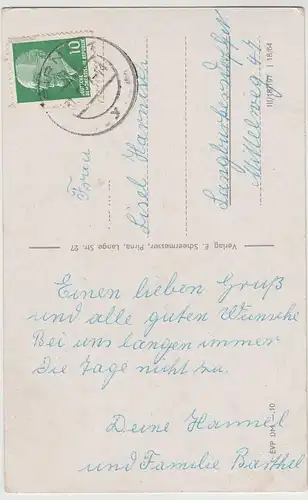 10
DEUTSCHE
DEMOKRATISCHE REPUBLIK
Frau
Lisel Hammer
Mittelweg 47
III/18/197 1 18/64
Verlag E. Scheermesser, Pirna, Lange Str. 27
Einen lieben Gruß
und alle guten Wünsche
Bei uns langen immer
die Tage nicht zu.
Deine Hannel
und Familie Barthel
EVP DM -,10